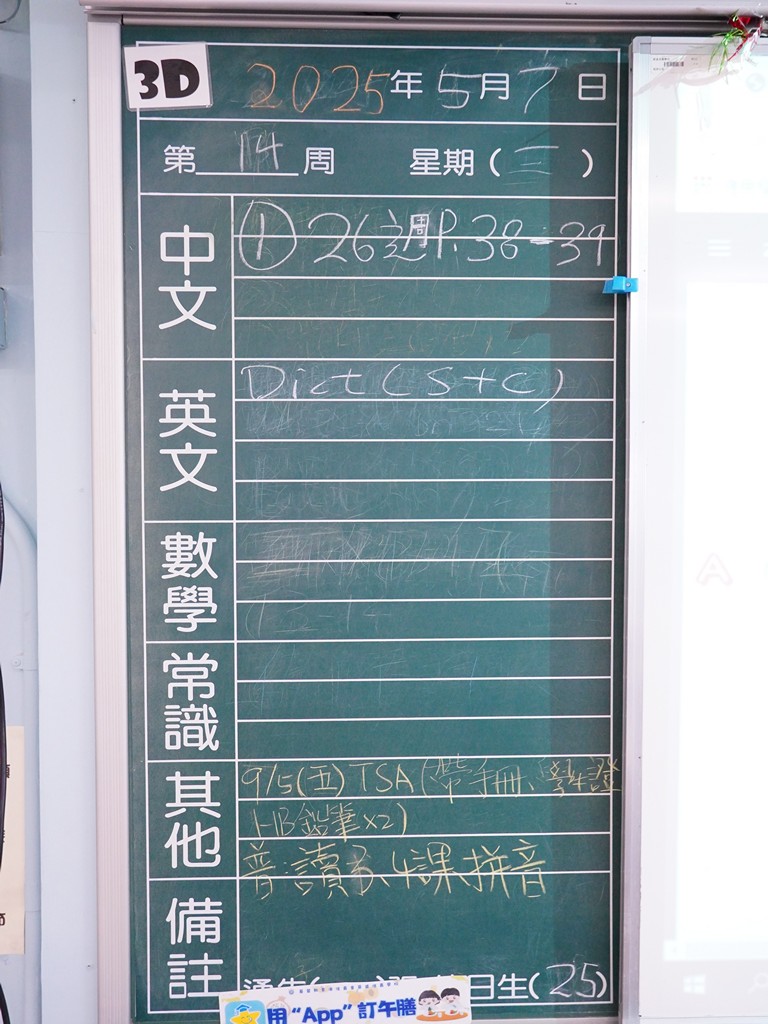 3D 2025年5月7日
第14周 星期(三)
中文 ① 26週 P.38-39
英文 Dict (S+C)
數學
常識
其他 9/5(五) TSA (帶手冊、學生證
HB鉛筆x2)
普:讀 4課拼音
備註
日生(25)
用“App”訂午膳